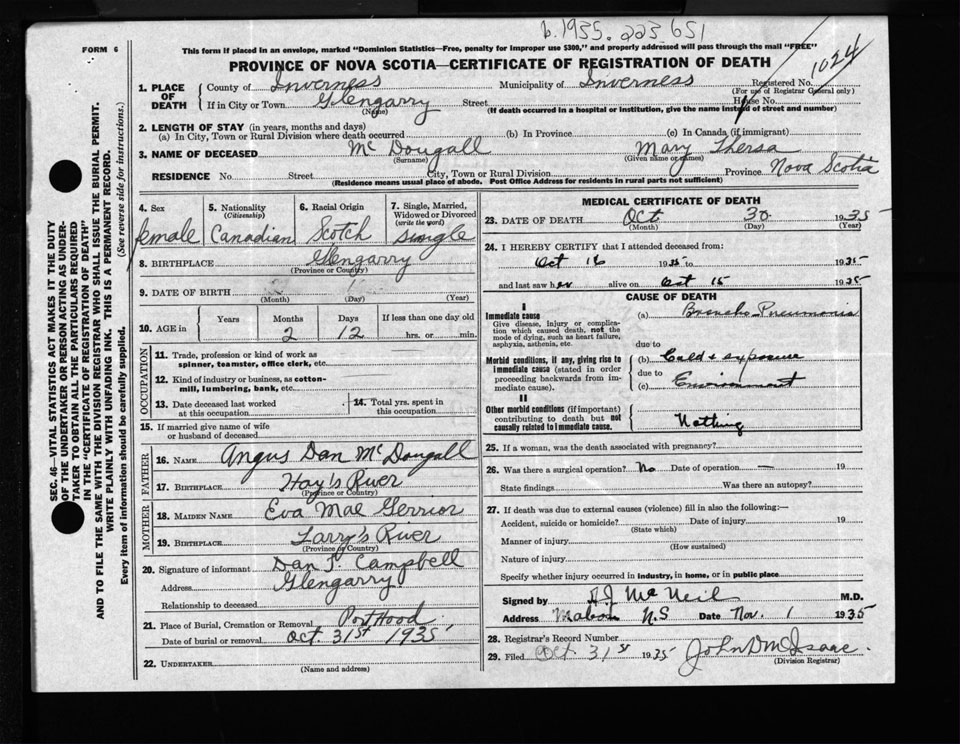 b. 1935. 223 651
FORM 6
This form if placed in an envelope, marked "Dominion Statistics—Free, penalty for improper use $300," and properly addressed will pass through the mail "FREE"
PROVINCE OF NOVA SCOTIA—CERTIFICATE OF REGISTRATION OF DEATH
1024
1. PLACE OF DEATH County of Inverness Municipality of Inverness Registered No. (For use of Registrar General only)
If in City or Town Glengarry (Name) Street House No.
(If death occurred in a hospital or institution, give the name instead of street and number)
2. LENGTH OF STAY (in years, months and days)
(a) In City, Town or Rural Division where death occurred (b) In Province (c) In Canada (if immigrant)
3. NAME OF DECEASED McDougall (Surname) Mary Thersa (Given name or names)
RESIDENCE No. Street City, Town or Rural Division Province Nova Scotia
(Residence means usual place of abode. Post Office Address for residents in rural parts not sufficient)
SEC. 46—VITAL STATISTICS ACT MAKES IT THE DUTY
OF THE UNDERTAKER OR PERSON ACTING AS UNDER-
TAKER TO OBTAIN ALL THE PARTICULARS REQUIRED
IN THE "CERTIFICATE OF REGISTRATION OF DEATH"
AND TO FILE THE SAME WITH THE DIVISION REGISTRAR WHO SHALL ISSUE THE BURIAL PERMIT.
WRITE PLAINLY WITH UNFADING INK. THIS IS A PERMANENT RECORD.
Every item of information should be carefully supplied. (See reverse side for instructions.)
4. Sex female
5. Nationality (Citizenship) Canadian
6. Racial Origin Scotch
7. Single, Married, Widowed or Divorced (write the word) single
8. BIRTHPLACE Glengarry (Province or Country)
9. DATE OF BIRTH (Month) (Day) (Year)
10. AGE in Years Months 2 Days 12 If less than one day old hrs. or min.
OCCUPATION
11. Trade, profession or kind of work as spinner, teamster, office clerk, etc.
12. Kind of industry or business, as cotton-mill, lumbering, bank, etc.
13. Date deceased last worked at this occupation
14. Total yrs. spent in this occupation
15. If married give name of wife or husband of deceased
FATHER
16. NAME Angus Dan McDougall
17. BIRTHPLACE Hay's River (Province or Country)
MOTHER
18. MAIDEN NAME Eva Mae Gerrior
19. BIRTHPLACE Larry's River (Province or Country)
20. Signature of informant Dan J. Campbell
Address Glengarry
Relationship to deceased
21. Place of Burial, Cremation or Removal Port Hood
Date of burial or removal Oct. 31st 1935
22. UNDERTAKER (Name and address)
MEDICAL CERTIFICATE OF DEATH
23. DATE OF DEATH Oct 30 1935 (Month) (Day) (Year)
24. I HEREBY CERTIFY that I attended deceased from:
Oct 16 1935 to 1935
and last saw her alive on Oct 15 1935
CAUSE OF DEATH
I
Immediate cause (a) Broncho Pneumonia
Give disease, injury or complication which caused death, not the mode of dying, such as heart failure, asphyxia, asthenia, etc.
due to
Morbid conditions, if any, giving rise to immediate cause (stated in order proceeding backwards from immediate cause). (b) Cold + exposure
due to
(c) Environment
II
Other morbid conditions (if important) contributing to death but not causally related to immediate cause. Nothing
25. If a woman, was the death associated with pregnancy?
26. Was there a surgical operation? No Date of operation — 19
State findings Was there an autopsy?
27. If death was due to external causes (violence) fill in also the following:—
Accident, suicide or homicide? (State which) Date of injury 19
Manner of injury (How sustained)
Nature of injury
Specify whether injury occurred in industry, in home, or in public place
Signed by A J McNeil M.D.
Address Mabou N.S Date Nov. 1 1935
28. Registrar's Record Number
29. Filed Oct. 31st 1935 John D McIsaac. (Division Registrar)